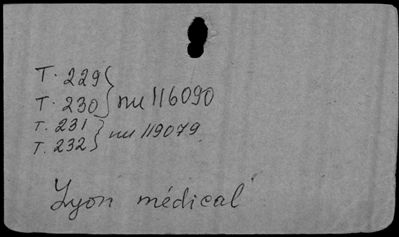 T. 229
T. 230 } nu 116090
T. 231
T. 232 } nu 119079
Lyon médical